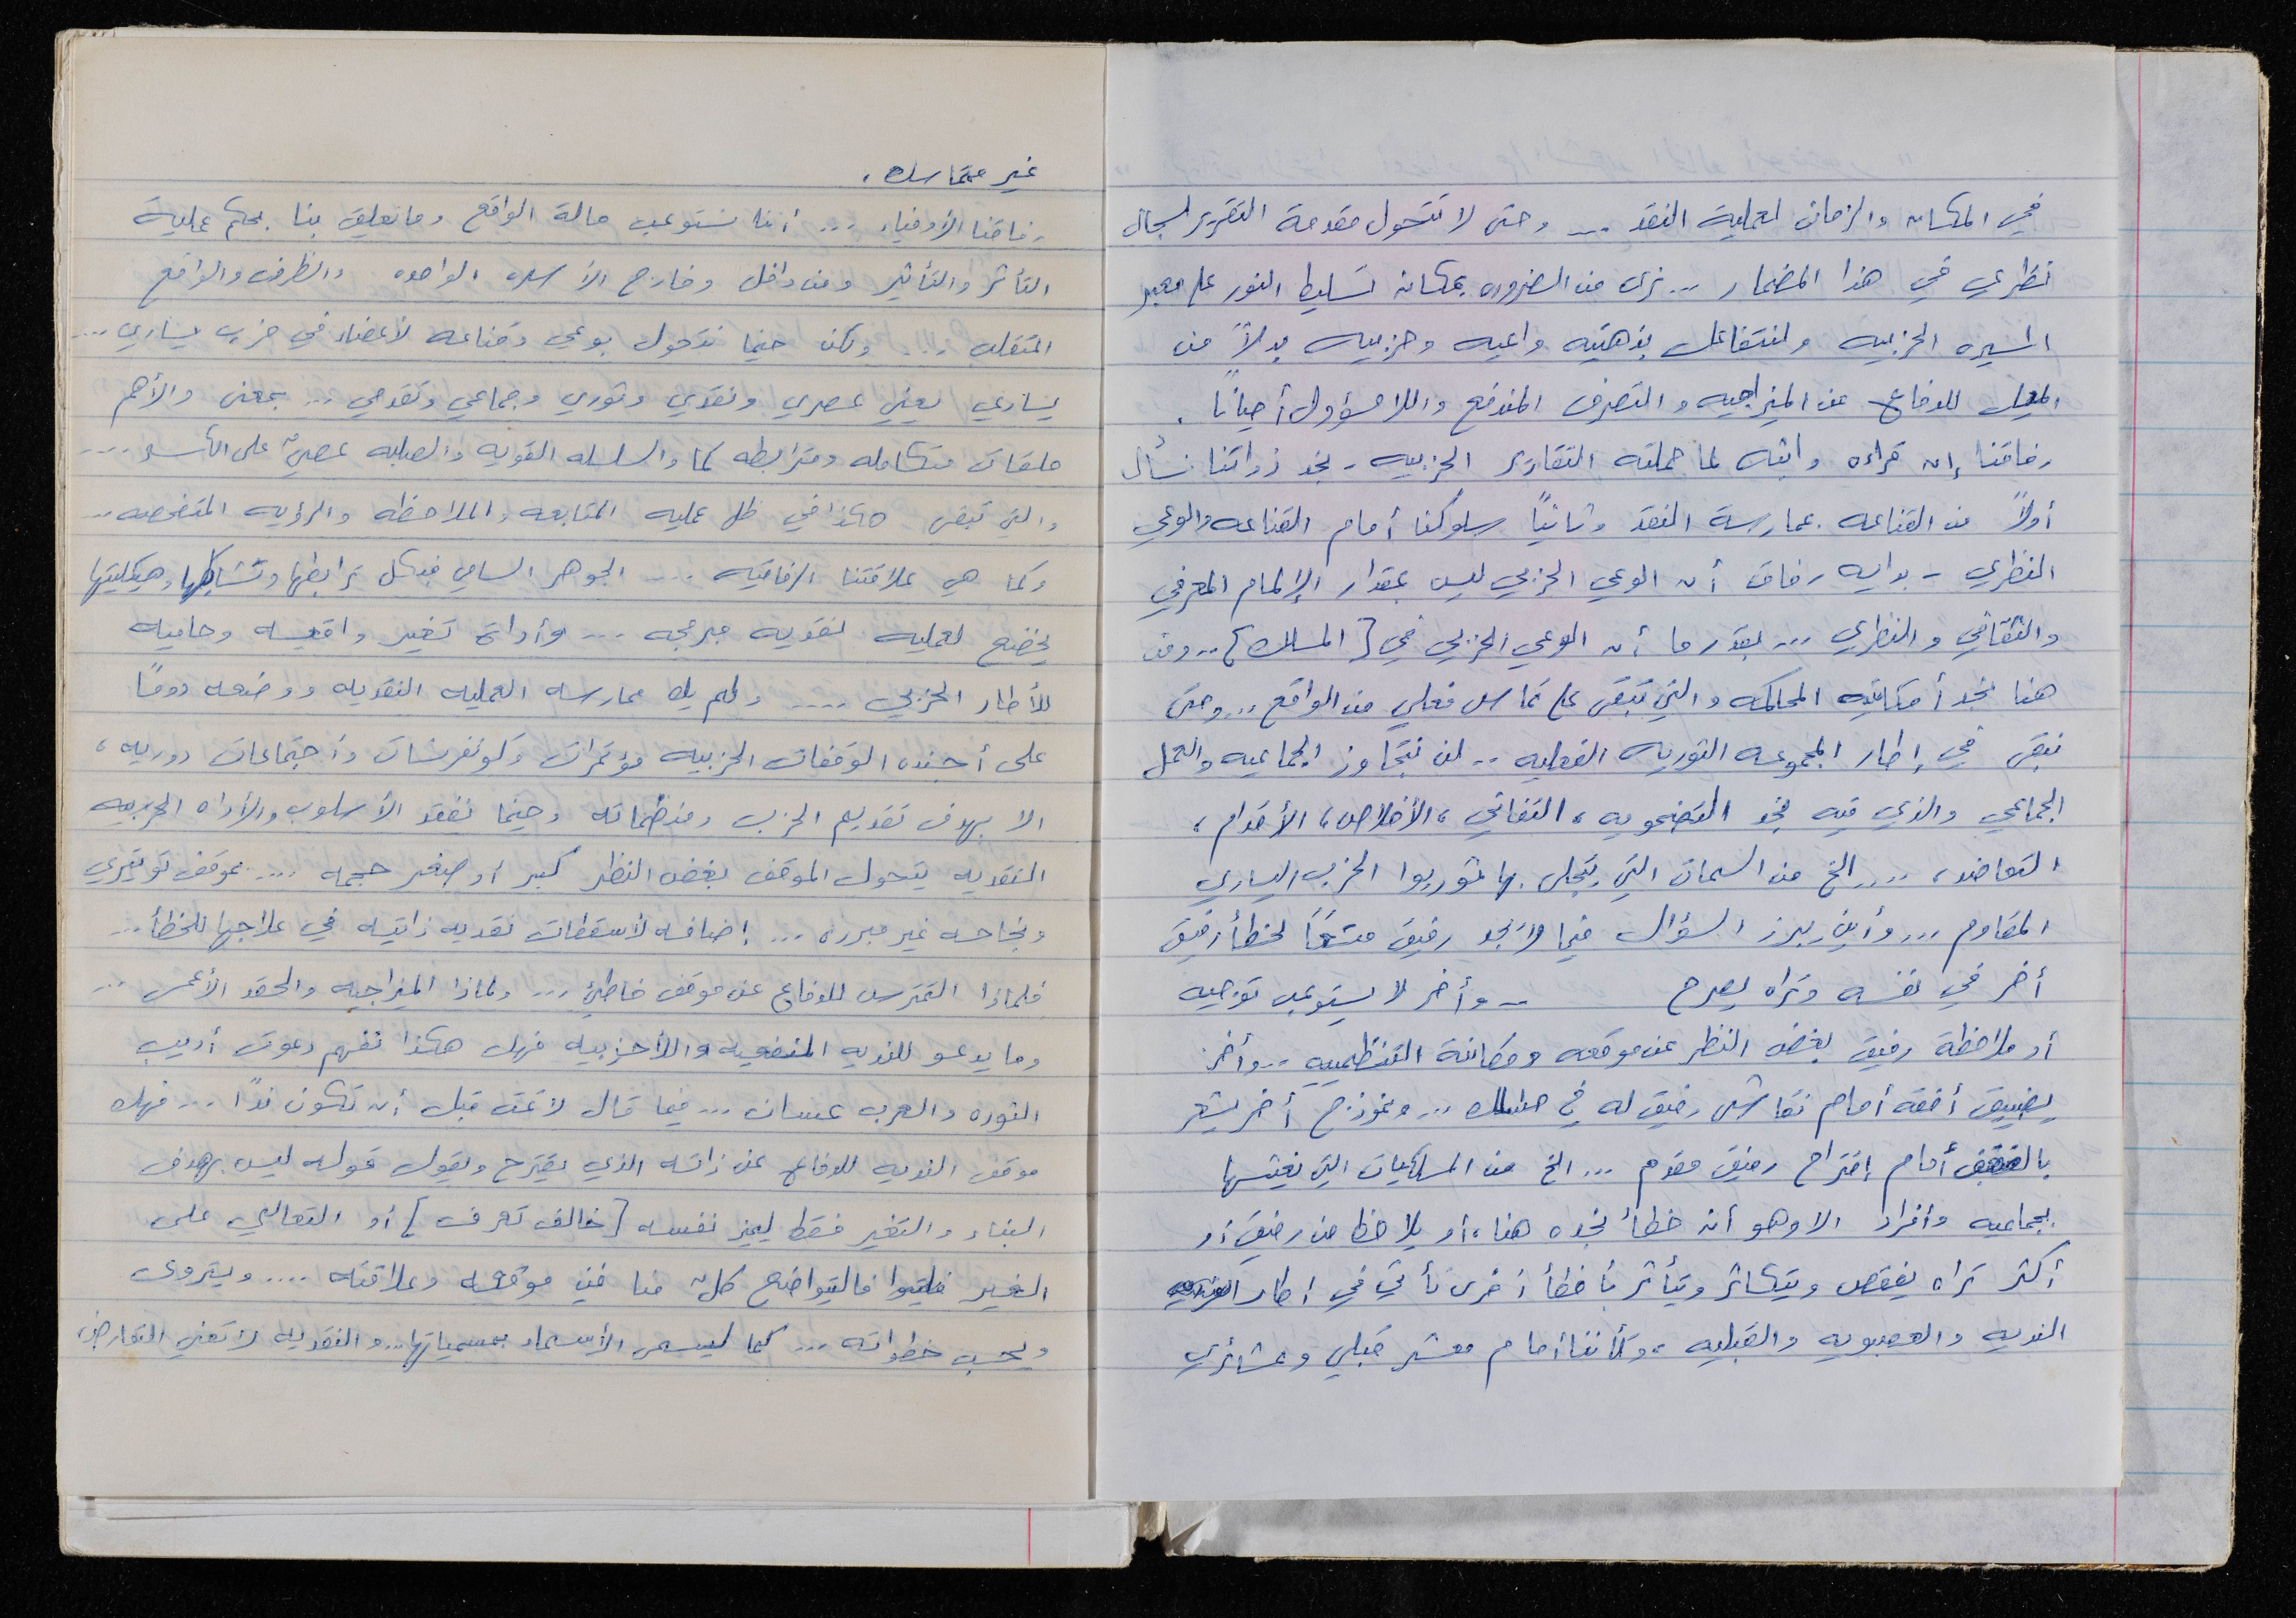 في المكان والزمان لعملية النقد ... وحتى لا تتحول مقدمة التقرير لسجال
نظري في هذا المضمار ... نرى من الضروره بمكان تسليط النور على
المسيره الحزبيه ولنتفاعل بذهنيه واعيه وحزبيه بدلاً من
الميل للدفاع عن المزاجيه والتصرف المندفع واللا مسؤول أحياناً .
رفاقنا إن قراءه واثقه لما حملته التقارير الحزبيه - نجد ذواتنا نسأل
أولاً من القناعه بممارسة النقد وثانياً سلوكنا أمام القناعه والوعي
النظري - بدايه رفاق أن الوعي الحزبي ليس بمقدار الإلمام المعرفي
والثقافي والنظري ... بقدر ما أن الوعي الحزبي في [المسلك] .. ومن
هنا نجد أمكانيه المحاكمه والتي تبقى على تماس فعلي من الواقع ... وحتى
نبقى في إطار المجموعه الثوريه الفعليه .. لن نتجاوز الجماعيه والعمل
الجماعي والذي فيه نجد التضحويه ، التفاني ، الأخلاص ، الأقدام ،
التعاضد ، .... الخ من السمات التي يتحلى بها ثوريوا الحزب اليساري
المقاوم ... وأين يبرز السؤال فيما لا نجد رفيق لخطأ رفيق
أخر في نفسه وتراه يصرح -- وأخر لا يستوعب توجيه
أو ملاحظة رفيق بغض النظر عن موقعه ومكانته التنظيميه ... وأخر
يضيق أفقه أمام نقاش رفيق له في مسلك ... ونموذج أخر يشعر
أمام إقتراح رفيق مقدم ... الخ من المسلكيات التي نعيشها
بجماعيه وأفراد الا وهو أن خطأ نجده هنا ، أو يلاحظ من رفيق أو
أكثر تراه يفقص ويتكاثر ويتأثر بأخطأ أخرى تأتي في اطار
النديه والعصبويه والقبليه ، وكأننا أمام معشر قبلي وعشائري
غير متماسك .
رفاقنا الأوفياء ... أننا نستوعب حالة الواقع وما تعليق بنا بحكم عملية
التأثر والتأثير ومن داخل وخارج الأسره الواحده والظرف والواقع
المتقلب ... ولكن حينما نتحول بوعي وقناعه لأعضاء في حزب يساري ...
يساري / يعني عصري ونقدي وثوري وجماعي وتقدمي ... بمعنى والأهم
حلقات متكامله ومترابطه كما والسلسله القويه والصلبه عصيّ على الكسر ....
والتي تبقى هكذا في ظل عمليه المتابعه والملاحظه والرؤيه المتفحصه ...
وكما هي علاقتنا الرفاقيه ... الجوهر السامي فبكل ترابطها وتشابكها وهيكليتها
يخضع لعمليه نقديه مبرمجه ... وأداة تغير واقعيه وحاميه
للأطار الحزبي .... ولم يك ممارسه العمليه النقديه ووضعه دوماً
على أجنده الوقفات الحزبيه مؤتمرات وكونفرنسات وأجتماعات دوريه ،
الا بهدف تقديم الحزب ومنظماته وحينما نفقد الأسلوب والأداه الحزبيه
النقديه يتحول الموقف بغض النظر كبير أو صغير حجمه .... بموقف توتيري
وبجاحه غير مبرره ... إضافه لأسقطات نقديه ذاتيه في علاجها للخطأ ...
فلماذا التمترس للدفاع عن موقف خاطئ ... ولماذا المزاجيه والحقد الأعمى ...
وما يدعو للنديه المنفعيه واللاحزبيه فهل هكذا نفهم دعوت أديب
الثوره والعرب غسان ... فيما قال لا تمت قبل أن تكون نداً ... فهل
موقف النديه للدفاع عن ذاته الذي يقترح ويقول قوله ليس بهدف
البناء والتغير فقط ليميز نفسه [خالف تعرف] أو التعالي على
الغير فاليتواضع كلٌ منا في موقعه وعلاقته .... ويتروى
ويحسب خطواته ... كيما ليسمى الأسماء بمسمياتها .. والنقديه لا تعني التعارض